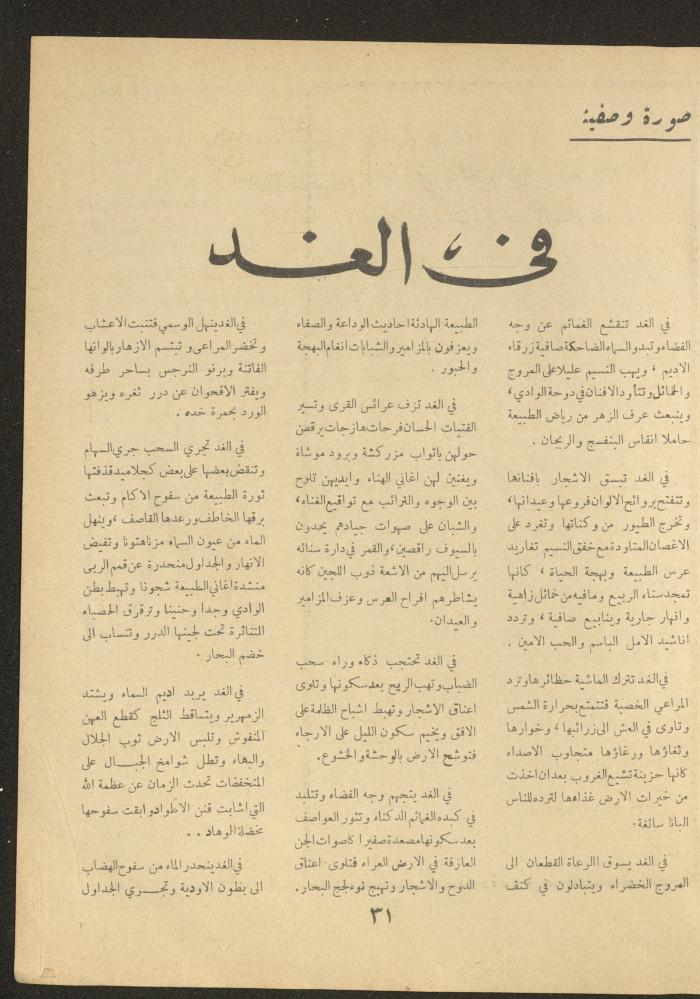 صورة وصفية
في الغد
في الغد تنقشع الغمائم عن وجه
الفضاء وتبدو السماء الضاحكة صافية زرقاء
الاديم ، ويهب النسيم عليلا على المروج
والخمائل وتتأود الافنان في دوحة الوادي،
وينبعث عرف الزهر من رياض الطبيعة
حاملا انفاس البنفسج والريحان .
في الغد تبسق الاشجار بافنانها
وتتفتح بروائح الالوان فروعها وعيدانها،
وتخرج الطيور من وكناتها وتغرد على
الاغصان المتاودة مع خفق النسيم تغاريد
عرس الطبيعة وبهجة الحياة ، كانها
تمجد سناء الربيع ومافيه من خمائل زاهية
وانهار جارية وينابيع صافية ، وتردد
اناشيد الامل الباسم والحب الامين .
في الغد تترك الماشية حظائرها وترد
المراعي الخصبة فتتمتع بحرارة الشمس
وتاوى في العش الى زرائبها ، وخوارها
وثغاؤها ورغاؤها متجاوب الاصداء
كانها حزينة تشيع الغروب بعد ان اخذت
من خيرات الارض غذاءها لترده للناس
البانا سائغة .
في الغد يسوق االرعاة القطعان الى
المروج الخضراء ويتبادلون في كنف
الطبيعة الهادئة احاديث الوداعة والصفاء
ويعزفون بالمزامير والشبابات انغام البهجة
والحبور .
في الغد تزف عرائس القرى وتسير
الفتيات الحسان فرحات هازجات يرقصن
حولهن باثواب مزركشة وبرود موشاة
ويغنين لهن اغاني الهناء وايديهن تلوح
بين الوجوه والترائب مع تواقيع الغناء،
والشبان على صهوات جيادهم يحدون
بالسيوف راقصين، والقمر في دارة سنائه
يرسل اليهم من الاشعة ذوب اللجين كانه
يشاطرهم افراح العرس وعزف المزامير
والعيدان .
في الغد تحتجب ذكاء وراء سحب
الضباب وتهب الريح بعد سكونها وتلوى
اعناق الاشجار وتهبط اشباح الظلمة على
الافق ويخيم سكون الليل على الارجاء
فتوشح الارض بالوحشة والخشوع .
في الغد يتجهم وجه الفضاء وتتلبد
في كبده الغمائم الدكناء وتثور العواصف
بعد سكونها مصعدة صفيرا كاصوات الجن
العازفة في الارض العراء فتلوى اعناق
الدوح والاشجار وتهيج نوء لجج البحار .
في الغد ينهل الوسمي فتنبت الاعشاب
وتخضر المراعي و تبتسم الازهار بالوانها
الفاتنة ويرنو النرجس بساحر طرفه
ويفتر الاقحوان عن درر ثغره ويزهو
الورد بحمرة خده .
في الغد تجري السحب جري السهام
وتنقض بعضها على بعض كجلاميد قذفتها
ثورة الطبيعة من سفوح الاكام وتبعث
برقها الخاطف ورعدها القاصف ، وينهل
الماء من عيون السماء مزناهتونا وتفيض
الانهار والجداول منحدرة عن قمم الربى
منشدة اغاني الطبيعة شجونا وتهبط بطن
الوادي وجدا وحنينا وترقرق الحصباء
المتناثرة تحت لجينها الدرر وتنساب الى
خضم البحار .
في الغد يربد اديم السماء ويشتد
الزمهرير ويتساقط الثلج كقطع العهن
المنفوش وتلبس الارض ثوب الجلال
والبهاء وتطل شوامخ الجبال على
المنخفضات تحدث الزمان عن عظمة الله
التي اشابت قنن الاطواد وابقت سفوحها
مخضلة الوهاد . .
في الغد ينحدر الماء من سفوح الهضاب
الى بطون الاودية وتجري الجداول
٣١